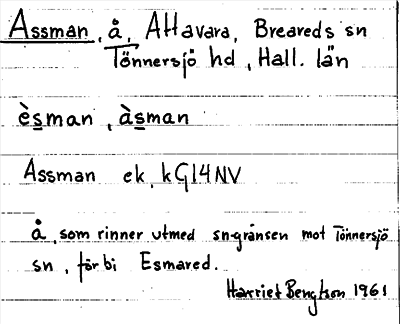 Assman, å, Attavara, Breareds sn
Tönnersjö hd, Hall. län
èsman, àsman
Assman ek. kG14NV
å, som rinner utmed sngränsen mot Tönnersjö
sn, förbi Esmared.
Harriet Bengtson 1961